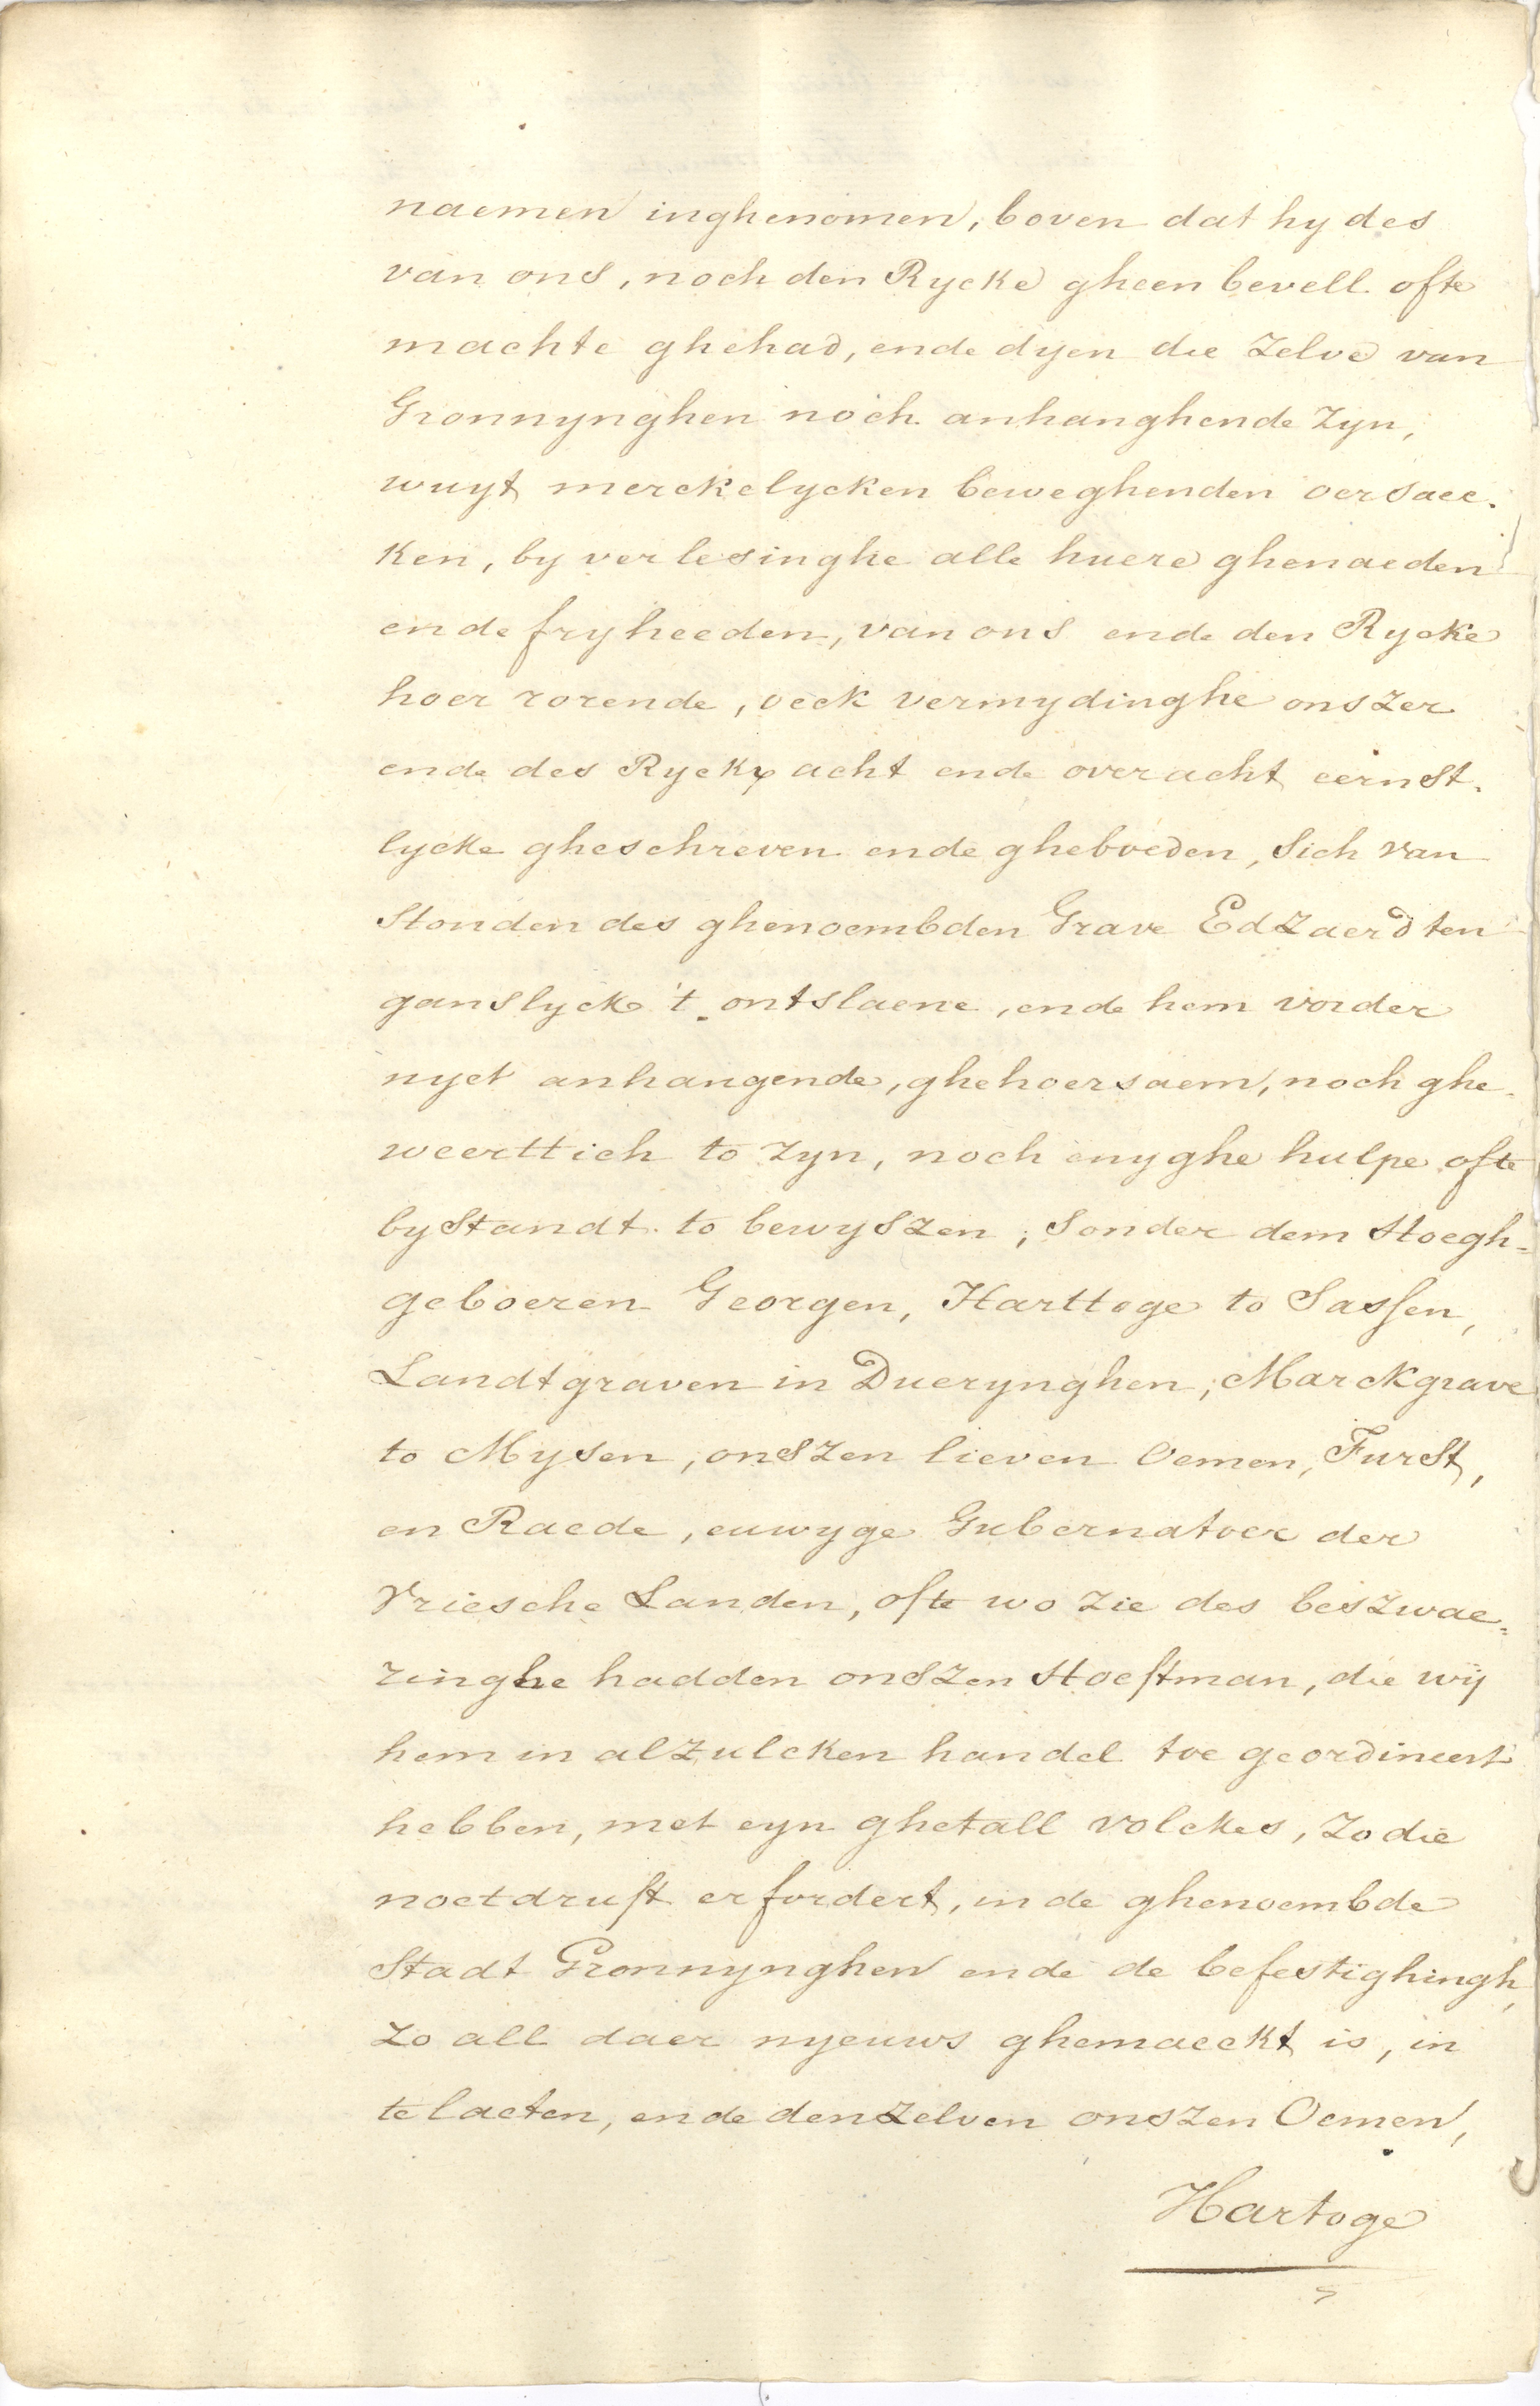 naemen inghenomen, boven dat hy des
van ons, noch den Rycke gheen bevell ofte
machte ghehad, ende dyen die zelve van
Gronnynghen noch anhanghende zyn,
wuyt merckelycken beweghenden oersaec-
ken, by verlesinghe alle huere ghenaeden
ende fryheeden, van ons ende den Rycke
hoer rorende, oeck vermydinghe onszer
ende des Rycks acht ende overacht eernst-
lycke gheschreven ende gheboeden, sich van
stonden des ghenoembden Grave Edzaerdten
ganslycke 't ontslaene, ende hem vorder
nyet anhangende, ghehoersaem, noch ghe-
weerttich to zyn, noch enyghe hulpe ofte
bystandt to bewyszen, sonder dem Hoegh-
geboeren Georgen, Harttoge to Sassen,
Landtgraven in Duerynghen, Marckgrave
to Mysen, onszen lieven Oemen, Furst,
en Raede, euwyge Gubernatoer der
Vriesche Landen, ofte wo zie des beszwae-
ringhe hadden onszen Hoeftman, die wij
hem in alzulcken handel toe geordineert
hebben, met eyn ghetall volckes, zo die
noetdruft erfordert, in de ghenoembde
Stadt Gronnynghen ende de befestighingh,
zo all daer nyeuws ghemaeckt is, in
te laeten, ende denzelven onszen Oemen,
Hartoge